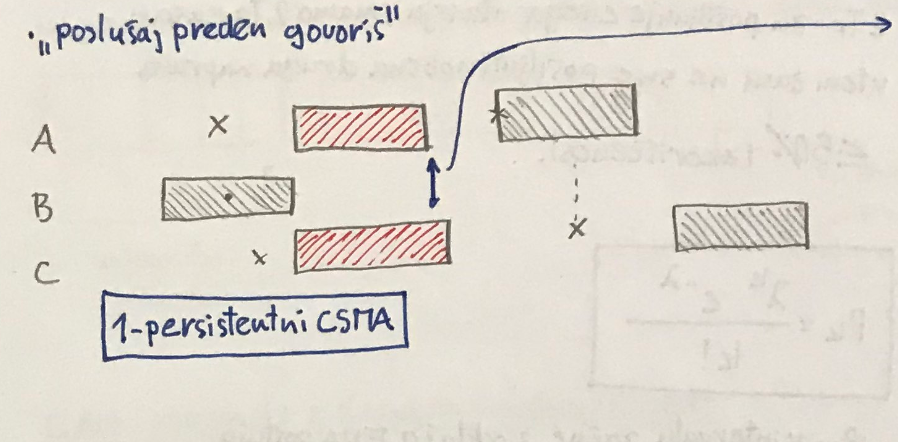 • „poslušaj preden govoriš"
A
B
C
1-persistentni CSMA